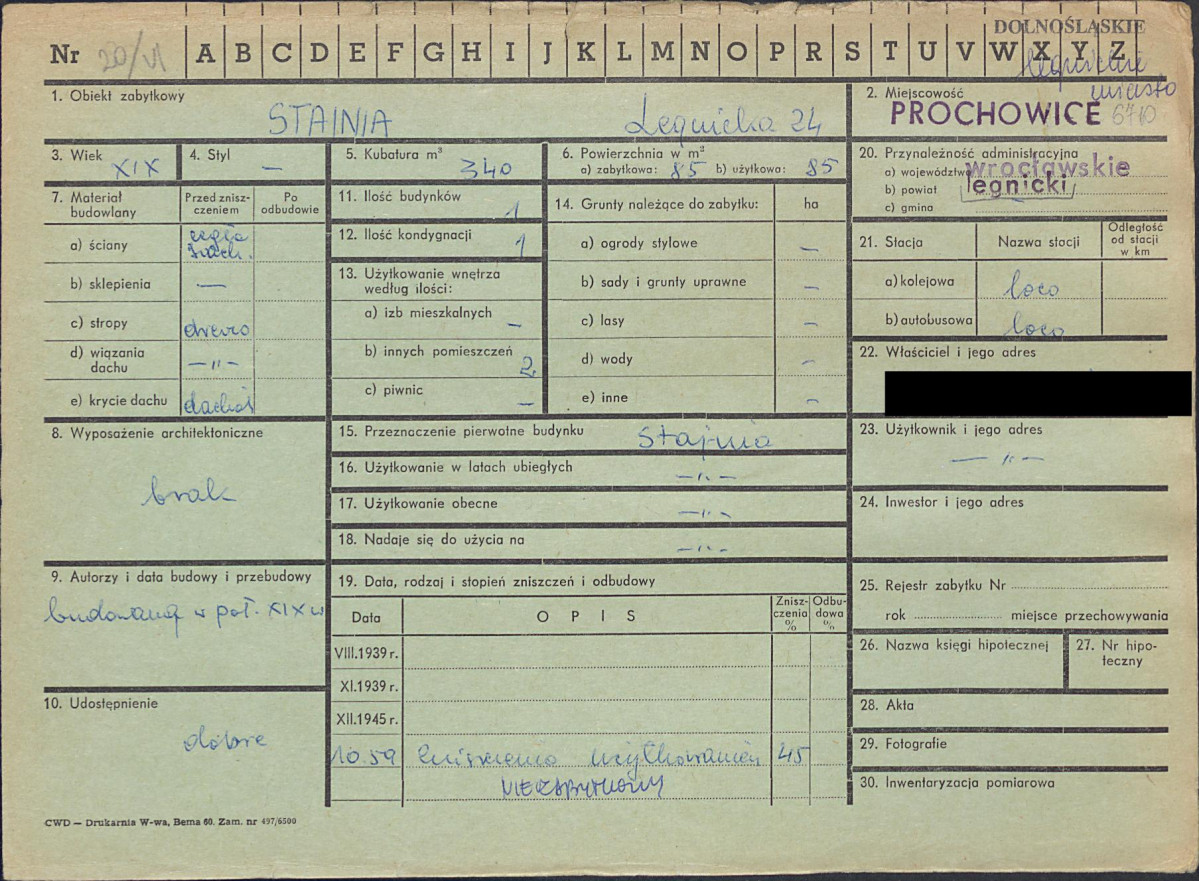 DOLNOŚLĄSKIE
Nr 20/VI A B C D E F G H I J K L M N O P R S T U V W X Y Z
legnickie
miasto
1. Obiekt zabytkowy
STAJNIA Legnicka 24
2. Miejscowość
PROCHOWICE 6710
3. Wiek XIX
4. Styl —
5. Kubatura m³ 340
6. Powierzchnia w m³
a) zabytkowa: 85 b) użytkowa: 85
20. Przynależność administracyjna
a) województwo wrocławskie
b) powiat legnicki
c) gmina —
7. Materiał budowlany
Przed znisz-czeniem
Po odbudowie
a) ściany cegła
b) sklepienia —
c) stropy drewno
d) wiązania dachu —„—
e) krycie dachu
11. Ilość budynków 1
12. Ilość kondygnacji 1
13. Użytkowanie wnętrza według ilości:
a) izb mieszkalnych —
b) innych pomieszczeń 2
c) piwnic —
14. Grunty należące do zabytku: ha
a) ogrody stylowe —
b) sady i grunty uprawne —
c) lasy —
d) wody —
e) inne —
21. Stacja
Nazwa stacji
Odległość od stacji w km
a) kolejowa loco
b) autobusowa loco
22. Właściciel i jego adres
8. Wyposażenie architektoniczne
brak
15. Przeznaczenie pierwotne budynku stajnia
16. Użytkowanie w latach ubiegłych —„—
17. Użytkowanie obecne —„—
18. Nadaje się do użycia na —„—
23. Użytkownik i jego adres
—„—
24. Inwestor i jego adres
9. Autorzy i data budowy i przebudowy
budowana w poł. XIX w
19. Data, rodzaj i stopień zniszczeń i odbudowy
Data OPIS Znisz-czenia % Odbu-dowa %
VIII.1939 r.
XI.1939 r.
XII.1945 r.
10.59 45
NIEZABYTKOWY
25. Rejestr zabytku Nr
rok miejsce przechowywania
26. Nazwa księgi hipotecznej
27. Nr hipo-teczny
10. Udostępnienie
dobre
28. Akta
29. Fotografie
30. Inwentaryzacja pomiarowa
CWD — Drukarnia W-wa, Bema 60. Zam. nr 497/6500